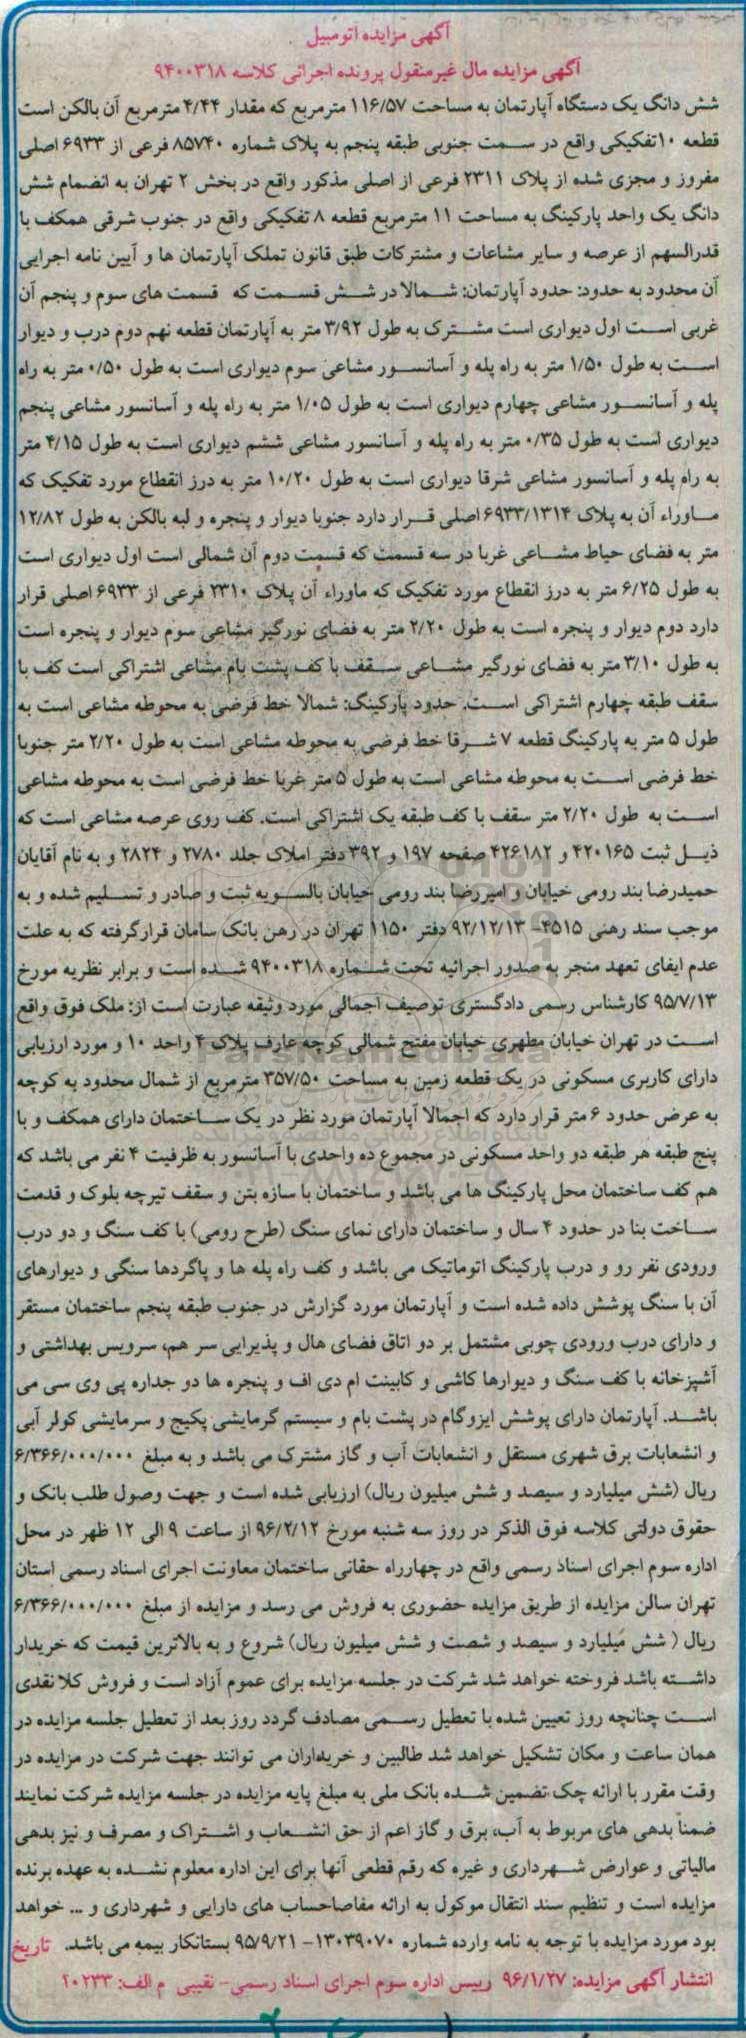 آگهی مزایده اتومبیل
آگهی مزایده مال غیرمنقول پرونده اجرائی کلاسه ۹۴۰۰۳۱۸
شش دانگ یک دستگاه آپارتمان به مساحت ۱۱۶/۵۷ مترمربع که مقدار ۴/۴۴ مترمربع آن بالکن است
قطعه ۱۰تفکیکی واقع در سمت جنوبی طبقه پنجم به پلاک شماره ۸۵۷۴۰ فرعی از ۶۹۳۳ اصلی
مفروز و مجزی شده از پلاک ۲۳۱۱ فرعی از اصلی مذکور واقع در بخش ۲ تهران به انضمام شش
دانگ یک واحد پارکینگ به مساحت ۱۱ مترمربع قطعه ۸ تفکیکی واقع در جنوب شرقی همکف با
قدرالسهم از عرصه و سایر مشاعات و مشترکات طبق قانون تملک آپارتمان ها و آیین نامه اجرایی
آن محدود به حدود: حدود آپارتمان: شمالا در شش قسمت که قسمت های سوم و پنجم آن
غربی است اول دیواری است مشترک به طول ۳/۹۲ متر به آپارتمان قطعه نهم دوم درب و دیوار
است به طول ۱/۵۰ متر به راه پله و آسانسور مشاعی سوم دیواری است به طول ۰/۵۰ متر به راه
پله و آسانسور مشاعی چهارم دیواری است به طول ۱/۰۵ متر به راه پله و آسانسور مشاعی پنجم
دیواری است به طول ۰/۳۵ متر به راه پله و آسانسور مشاعی ششم دیواری است به طول ۴/۱۵ متر
به راه پله و آسانسور مشاعی شرقا دیواری است به طول ۱۰/۲۰ متر به درز انقطاع مورد تفکیک که
ماوراء آن به پلاک ۶۹۳۳/۱۳۱۴ اصلی قرار دارد جنوبا دیوار و پنجره و لبه بالکن به طول ۱۲/۸۲
متر به فضای حیاط مشاعی غربا در سه قسمت که قسمت دوم آن شمالی است اول دیواری است
به طول ۶/۲۵ متر به درز انقطاع مورد تفکیک که ماوراء آن پلاک ۲۳۱۰ فرعی از ۶۹۳۳ اصلی قرار
دارد دوم دیوار و پنجره است به طول ۲/۲۰ متر به فضای نورگیر مشاعی سوم دیوار و پنجره است
به طول ۳/۱۰ متر به فضای نورگیر مشاعی سقف با کف پشت بام مشاعی اشتراکی است کف با
سقف طبقه چهارم اشتراکی است. حدود پارکینگ: شمالا خط فرضی به محوطه مشاعی است به
طول ۵ متر به پارکینگ قطعه ۷ شرقا خط فرضی به محوطه مشاعی است به طول ۲/۲۰ متر جنوبا
خط فرضی است به محوطه مشاعی است به طول ۵ متر غربا خط فرضی است به محوطه مشاعی
است به طول ۲/۲۰ متر سقف با کف طبقه یک اشتراکی است. کف روی عرصه مشاعی است که
ذیل ثبت ۴۲۰۱۶۵ و ۴۲۶۱۸۲ صفحه ۱۹۷ و ۳۹۲ دفتر املاک جلد ۲۷۸۰ و ۲۸۲۴ و به نام آقایان
حمیدرضا بند رومی خیابان و امیررضا بند رومی خیابان بالسویه ثبت و صادر و تسلیم شده و به
موجب سند رهنی ۴۵۱۵- ۹۲/۱۲/۱۳ دفتر ۱۱۵۰ تهران در رهن بانک سامان قرارگرفته که به علت
عدم ایفای تعهد منجر به صدور اجرائیه تحت شماره ۹۴۰۰۳۱۸ شده است و برابر نظریه مورخ
۹۵/۷/۱۳ کارشناس رسمی دادگستری توصیف اجمالی مورد وثیقه عبارت است از: ملک فوق واقع
است در تهران خیابان مطهری خیابان مفتح شمالی کوچه عارف پلاک ۴ واحد ۱۰ و مورد ارزیابی
دارای کاربری مسکونی در یک قطعه زمین به مساحت ۳۵۷/۵۰ مترمربع از شمال محدود به کوچه
به عرض حدود ۶ متر قرار دارد که اجمالا آپارتمان مورد نظر در یک ساختمان دارای همکف و با
پنج طبقه هر طبقه دو واحد مسکونی در مجموع ده واحدی با آسانسور به ظرفیت ۴ نفر می باشد که
هم کف ساختمان محل پارکینگ ها می باشد و ساختمان با سازه بتن و سقف تیرچه بلوک و قدمت
ساخت بنا در حدود ۴ سال و ساختمان دارای نمای سنگ (طرح رومی) با کف سنگ و دو درب
ورودی نفر رو و درب پارکینگ اتوماتیک می باشد و کف راه پله ها و پاگردها سنگی و دیوارهای
آن با سنگ پوشش داده شده است و آپارتمان مورد گزارش در جنوب طبقه پنجم ساختمان مستقر
و دارای درب ورودی چوبی مشتمل بر دو اتاق فضای هال و پذیرایی سر هم، سرویس بهداشتی و
آشپزخانه با کف سنگ و دیوارها کاشی و کابینت ام دی اف و پنجره ها دو جداره پی وی سی می
باشد. آپارتمان دارای پوشش ایزوگام در پشت بام و سیستم گرمایشی پکیج و سرمایشی کولر آبی
و انشعابات برق شهری مستقل و انشعابات آب و گاز مشترک می باشد و به مبلغ ۶/۳۶۶/۰۰۰/۰۰۰
ریال (شش میلیارد و سیصد و شش میلیون ریال) ارزیابی شده است و جهت وصول طلب بانک و
حقوق دولتی کلاسه فوق الذکر در روز سه شنبه مورخ ۹۶/۲/۱۲ از ساعت ۹ الی ۱۲ ظهر در محل
اداره سوم اجرای اسناد رسمی واقع در چهارراه حقانی ساختمان معاونت اجرای اسناد رسمی استان
تهران سالن مزایده از طریق مزایده حضوری به فروش می رسد و مزایده از مبلغ ۶/۳۶۶/۰۰۰/۰۰۰
ریال ( شش میلیارد و سیصد و شصت و شش میلیون ریال) شروع و به بالاترین قیمت که خریدار
داشته باشد فروخته خواهد شد شرکت در جلسه مزایده برای عموم آزاد است و فروش کلا نقدی
است چنانچه روز تعیین شده با تعطیل رسمی مصادف گردد روز بعد از تعطیل جلسه مزایده در
همان ساعت و مکان تشکیل خواهد شد طالبین و خریداران می توانند جهت شرکت در مزایده در
وقت مقرر با ارائه چک تضمین شده بانک ملی به مبلغ پایه مزایده در جلسه مزایده شرکت نمایند
ضمناً بدهی های مربوط به آب، برق و گاز اعم از حق انشعاب و اشتراک و مصرف و نیز بدهی
مالیاتی و عوارض شهرداری و غیره که رقم قطعی آنها برای این اداره معلوم نشده به عهده برنده
مزایده است و تنظیم سند انتقال موکول به ارائه مفاصاحساب های دارایی و شهرداری و ... خواهد
بود مورد مزایده با توجه به نامه وارده شماره ۱۳۰۳۹۰۷۰- ۹۵/۹/۲۱ بستانکار بیمه می باشد. تاریخ
انتشار آگهی مزایده: ۹۶/۱/۲۷ رییس اداره سوم اجرای اسناد رسمی- نقیبی م الف: ۲۰۲۳۳